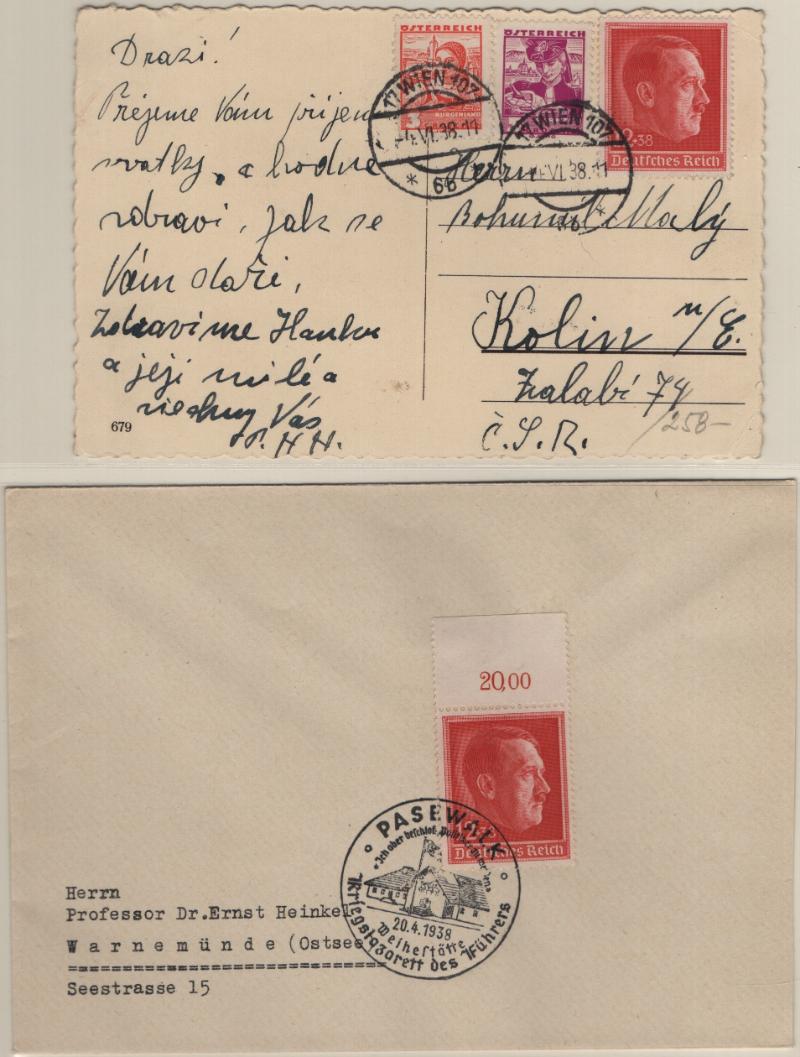 Drazí!
Přejeme Vám příjem
svátky, a hodně
zdraví, jak se
Vám daří,
Zdravíme Hanku
a její milé a
všechny Vás
N. N.
679
ÖSTERREICH
3
BURGENLAND
ÖSTERREICH
Deutsches Reich
17 WIEN 107
VI.38.11
* 6b
17 WIEN 107
VI.38.11
Herrn
Bohumil Malý
Kolín n/E.
Zálabí 74
Č.S.R.
/258-
20,00
Deutsches Reich
PASEWALK
Ich aber beschloß, Politiker
20.4.1938
Weihestätte
Kriegslazarett des Führers
Herrn
Professor Dr.Ernst Heinkel
Warnemünde (Ostsee
===========================
Seestrasse 15